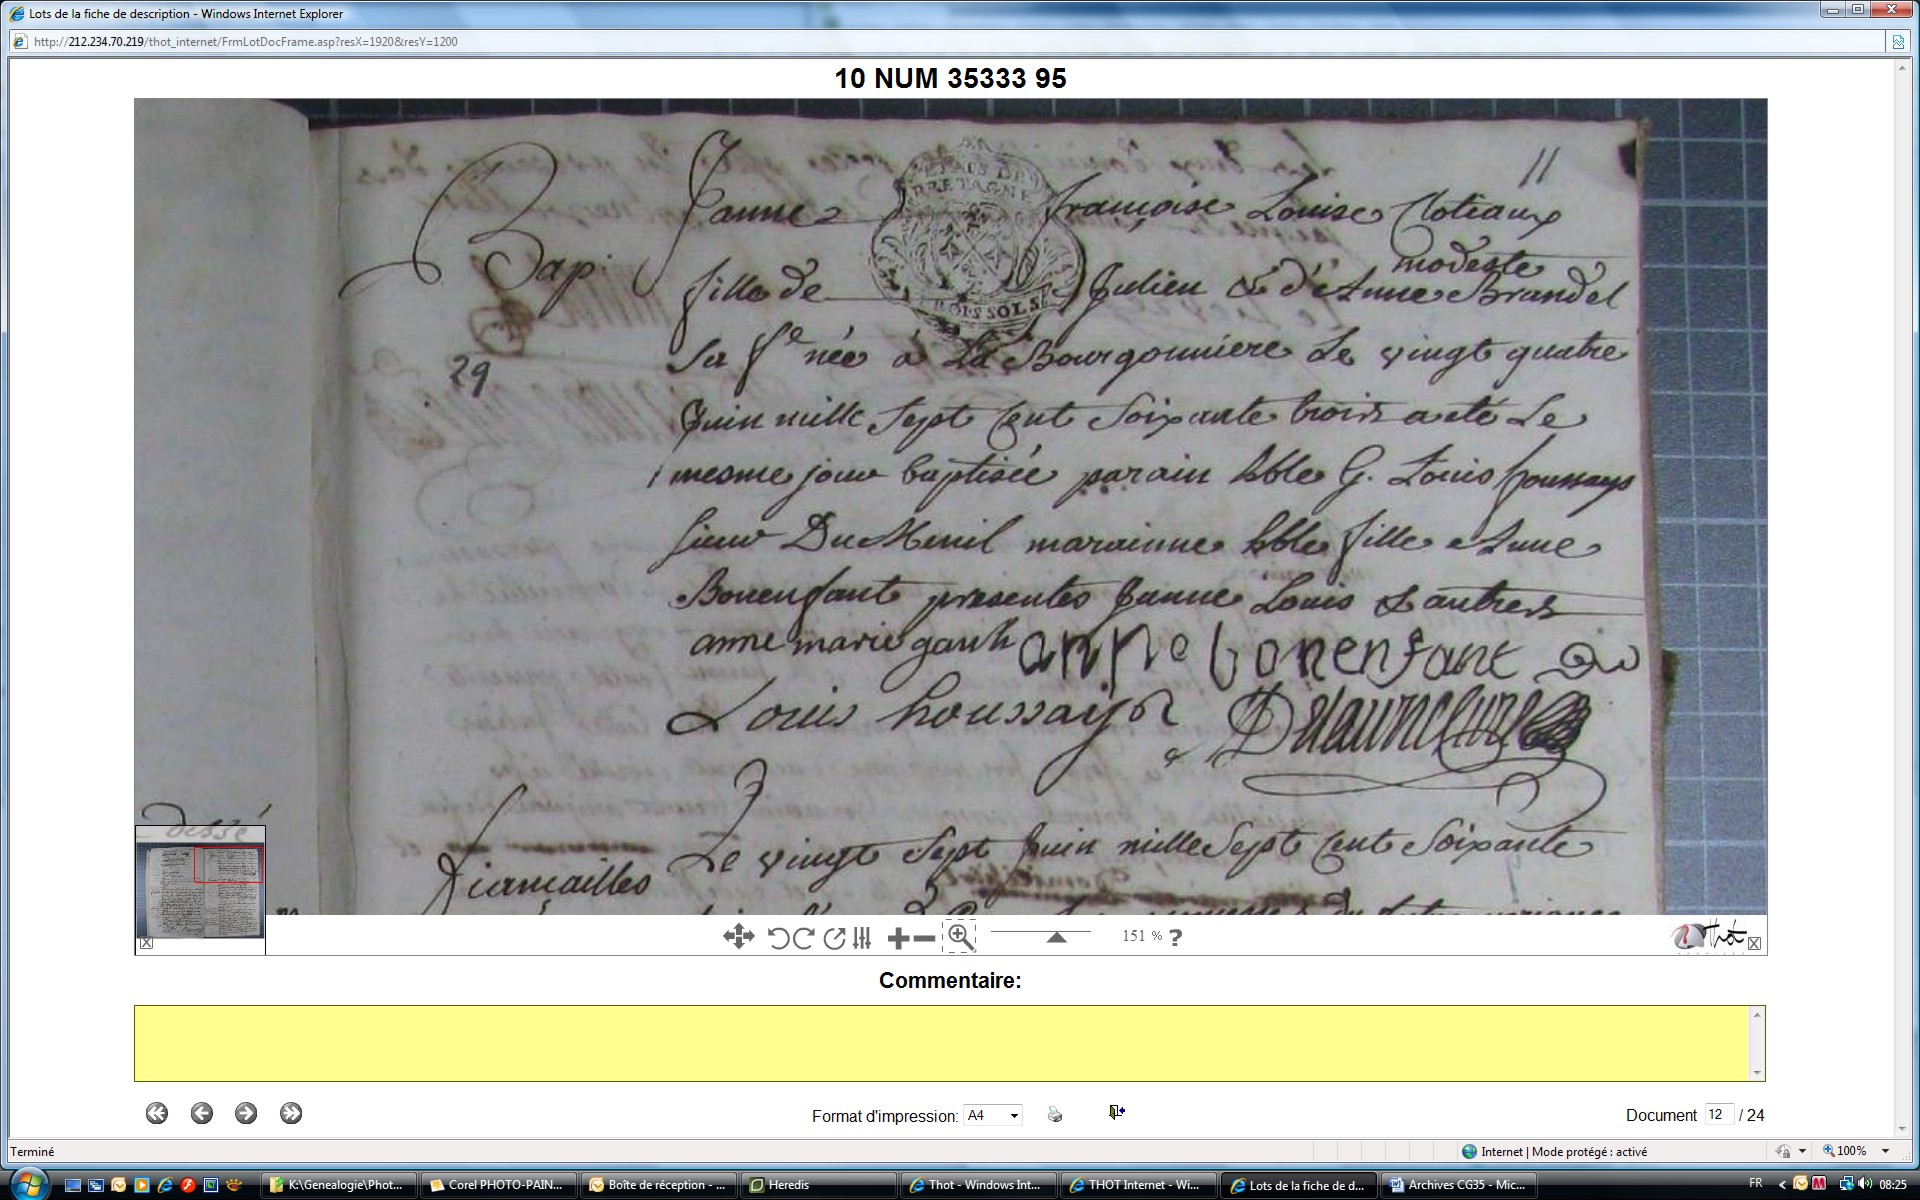 Lots de la fiche de description - Windows Internet Explorer
http://212.234.70.219/thot_internet/FrmLotDocFrame.asp?resX=1920&resY=1200
10 NUM 35333 95
11
ETATS DE
BRETAGNE
Bap
29
Janne françoise Louise Cloteaux
modeste
fille de Julien & d'Anne Brandel
Sa fe née a La Bourgonniere Le vingt quatre
Juin mille Sept Cent Soixante trois a eté Le
mesme jour baptisée parain hble G. Louis houssays
Sieur Du Menil marainne hble fille Anne
Bonenfant presentes Janne Louis & autres
anne marie gault anne bonenfant
Louis houssays
dessé
fiancailles
Le vingt Sept Juin mille Sept Cent Soixante
151 % ?
Thot
Commentaire:
Format d'impression: A4
Document 12 / 24
Terminé
Internet | Mode protégé : activé
100%
K:\Genealogie\Phot...
Corel PHOTO-PAIN...
Boîte de réception - ...
Heredis
Thot - Windows Int...
THOT Internet - Wi...
Lots de la fiche de d...
Archives CG35 - Mic...
FR
08:25